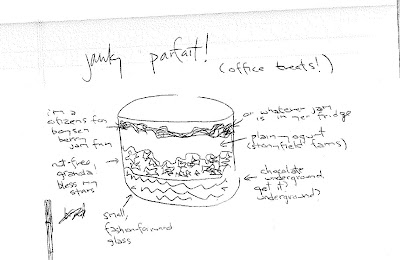 janky parfait!
(office treats!)
i'm a
citizens fan
boysen
berry
jam fan
or whatever jam
is in yer fridge
plain yogurt
(stonyfield farms)
nut-free
granola
bless my
stars
chocolate
underground.
get it?
underground?
small,
fashion forward
glass